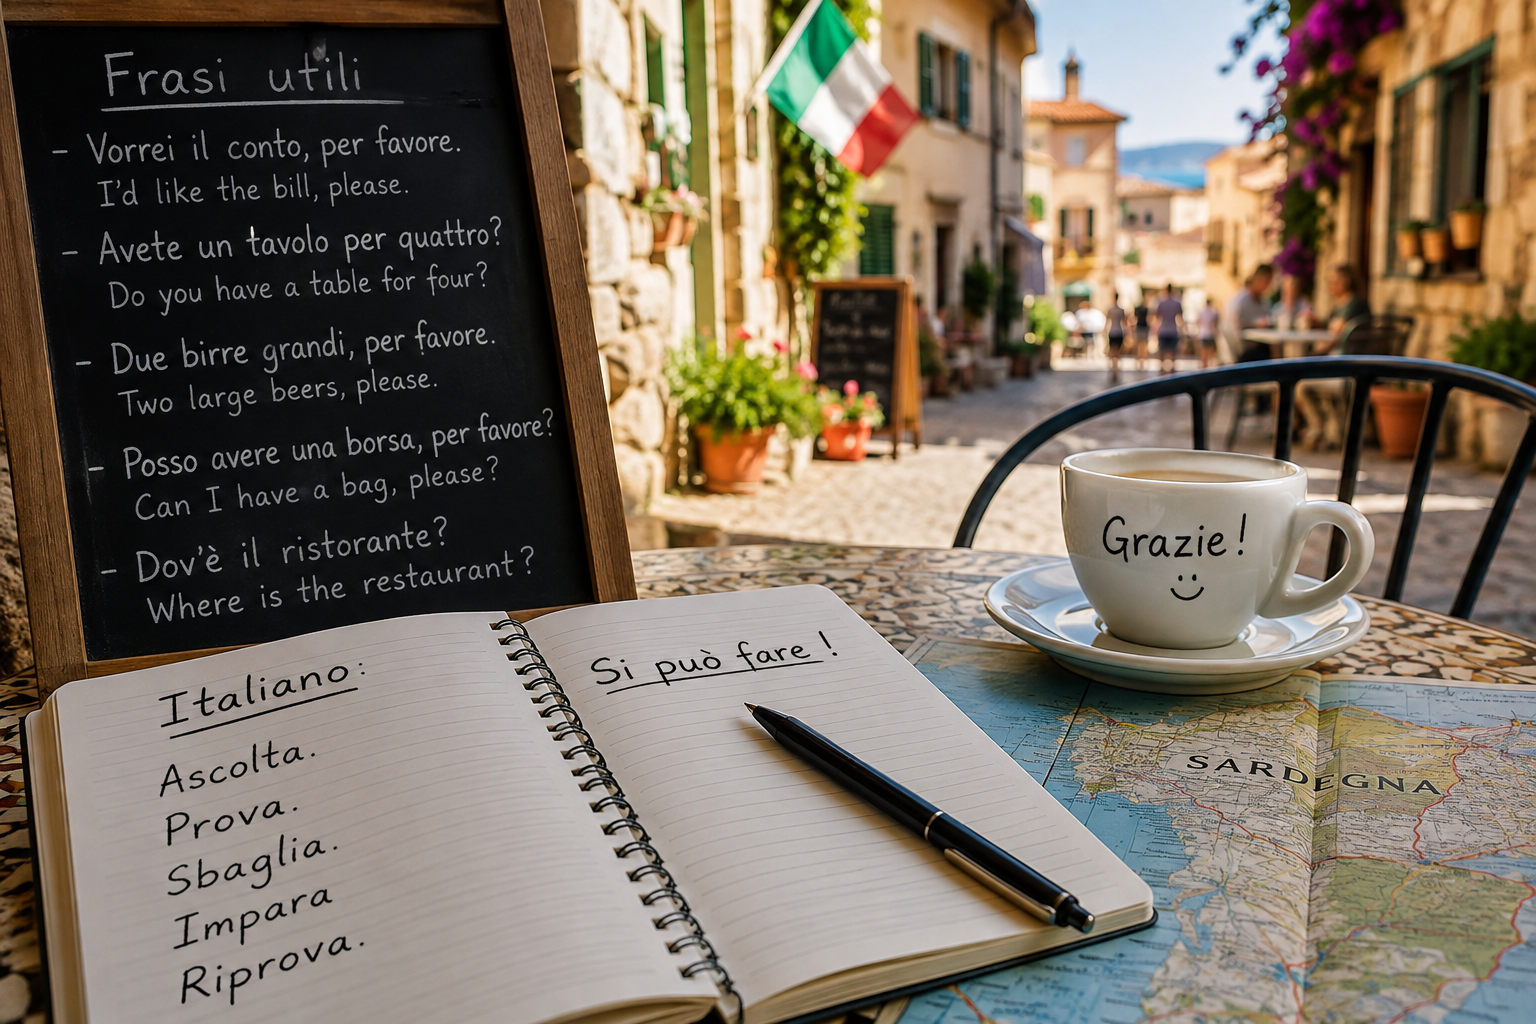 Frasi utili
- Vorrei il conto, per favore.
I'd like the bill, please.
- Avete un tavolo per quattro?
Do you have a table for four?
- Due birre grandi, per favore.
Two large beers, please.
- Posso avere una borsa, per favore?
Can I have a bag, please?
- Dov'è il ristorante?
Where is the restaurant?
Italiano:
Ascolta.
Prova.
Sbaglia.
Impara
Riprova.
Si può fare!
Grazie!
SARDEGNA